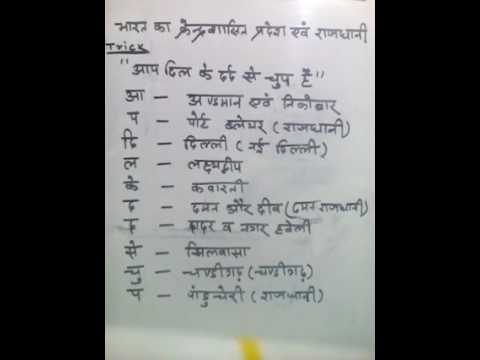 भारत का केन्द्रशासित प्रदेश एवं राजधानी
Trick
"आप दिल के दर्द से चुप हैं"
आ – अण्डमान एवं निकोबार
प – पोर्ट ब्लेयर (राजधानी)
दि – दिल्ली (नई दिल्ली)
ल – लक्ष्यद्वीप
के – कवारत्ती
द – दमन और दीव (दमन राजधानी)
द – दादर व नगर हवेली
से – सिलवासा
चु – चण्डीगढ़ (चण्डीगढ़)
प – पांडुचेरी (राजधानी)